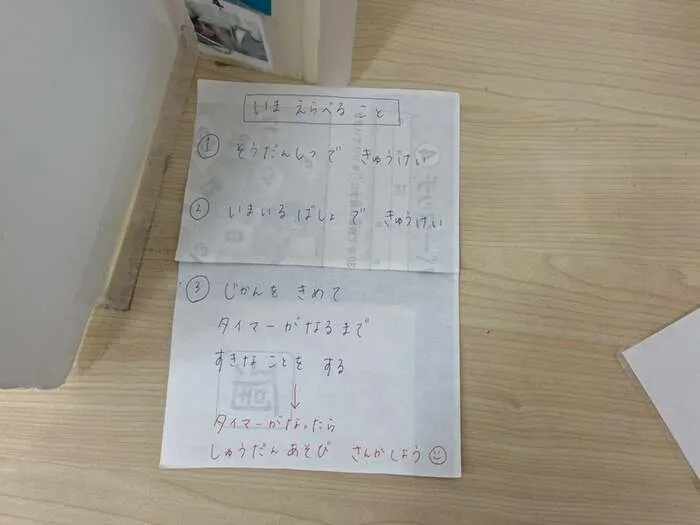 いま えらべる こと
① そうだんしつで きゅうけい
② いまいる ばしょ で きゅうけい
③ じかんを きめて
タイマーがなるまで
すきな ことを する
↓
タイマーがなったら
しゅうだん あそび さんかしよう☺